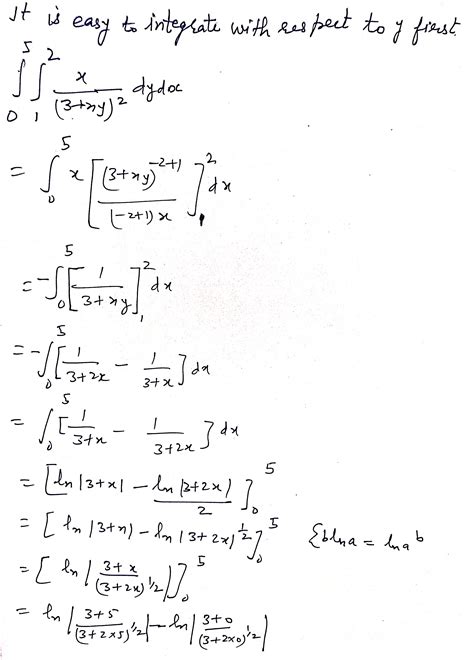 It is easy to integrate with respect to y first.
∫₀⁵ ∫₁² x/(3+xy)² dydx
= ∫₀⁵ x [(3+xy)^(-2+1)/((-2+1)x)]₁² dx
= -∫₀⁵ [1/(3+xy)]₁² dx
= -∫₀⁵ [1/(3+2x) - 1/(3+x)] dx
= ∫₀⁵ [1/(3+x) - 1/(3+2x)] dx
= [ln|3+x| - ln|3+2x|/2]₀⁵
= [ln|3+x| - ln|3+2x|^(1/2)]₀⁵ {b ln a = ln a^b
= [ln|(3+x)/(3+2x)^(1/2)|]₀⁵
= ln|(3+5)/(3+2×5)^(1/2)| - ln|(3+0)/(3+2×0)^(1/2)|